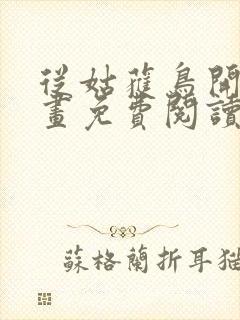 從姑蘿鳥開
畫免費閱讀
蘇格蘭折耳猫